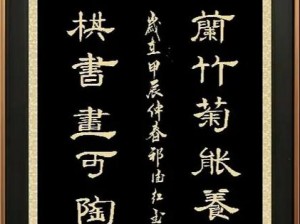 蘭竹菊能養
歲在甲辰仲春
棋書畫可陶